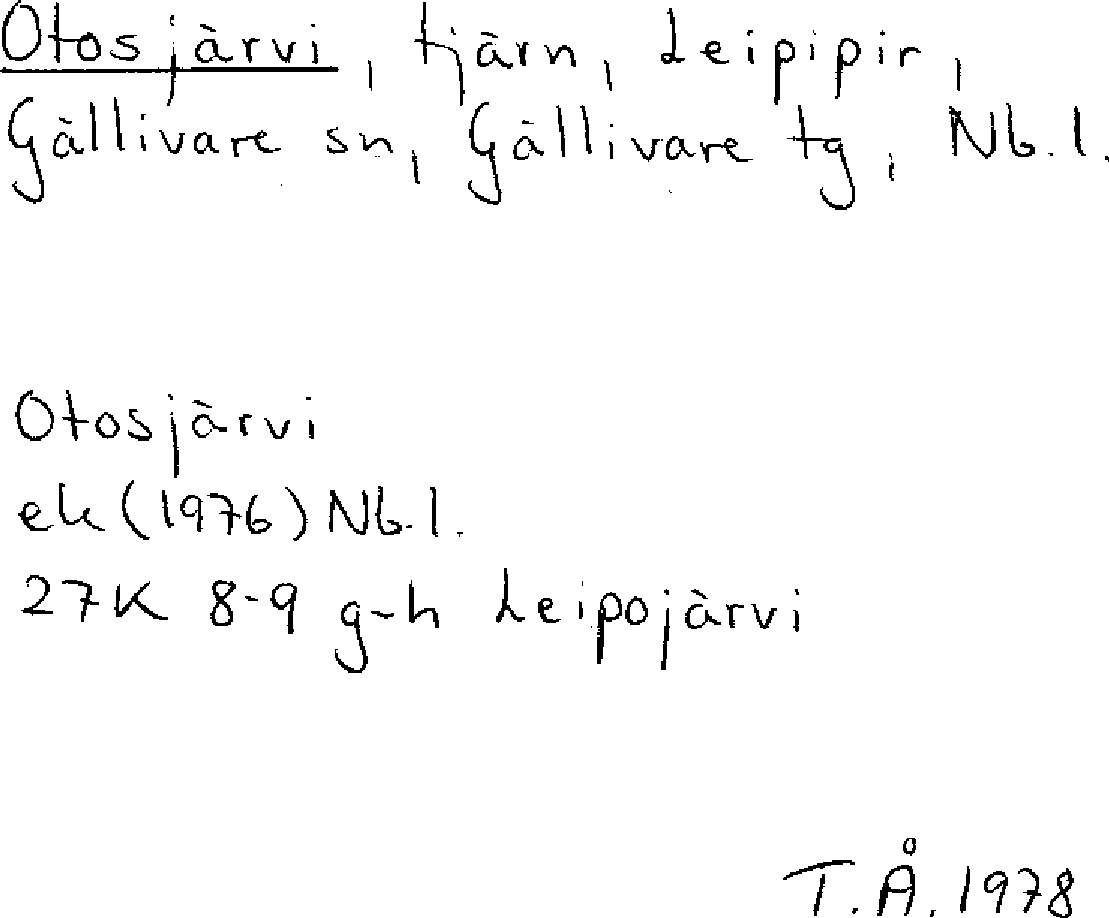 Otosjärvi, tjärn, Leipipir,
Gällivare sn, Gällivare tg, Nb.l.
Otosjärvi
ek (1976) Nb.l.
27K 8-9 g-h Leipojärvi
T.Å. 1978